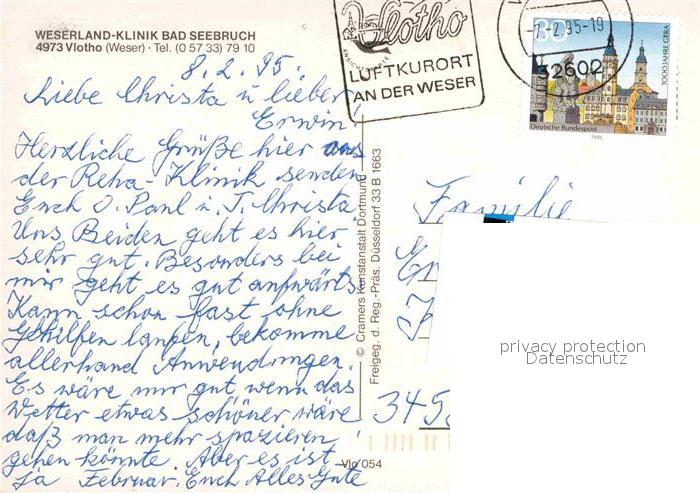 WESERLAND-KLINIK BAD SEEBRUCH
4973 Vlotho (Weser) · Tel. (0 57 33) 79 10
8.2.95.
Liebe Christa u lieber
Erwin!
Herzliche Grüße hier aus
der Reha-Klinik senden
Euch O. Paul u. T. Christa
Uns Beiden geht es hier
sehr gut. Besonders bei
mir geht es gut aufwärts.
Kann schon fast ohne
Gehilfen laufen, bekomme
allerhand Anwendungen.
Es wäre mir gut wenn das
Wetter etwas schöner wäre
daß man mehr spazieren
gehen könnte. Aber es ist
ja Februar. Euch Alles Gute
Vlotho
LUFTKURORT
AN DER WESER
95-19
32602
80
1000 JAHRE GERA
Deutsche Bundespost
1995
© Cramers Kunstanstalt Dortmund
Freigeg. d. Reg.-Präs. Düsseldorf 33 B 1663
Familie
345
Vlo 054
privacy protection
Datenschutz